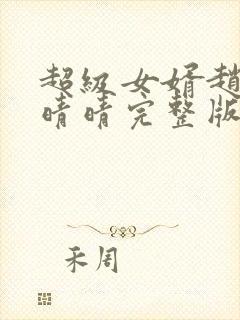 超級女婿趙
晴晴完整版
禾周